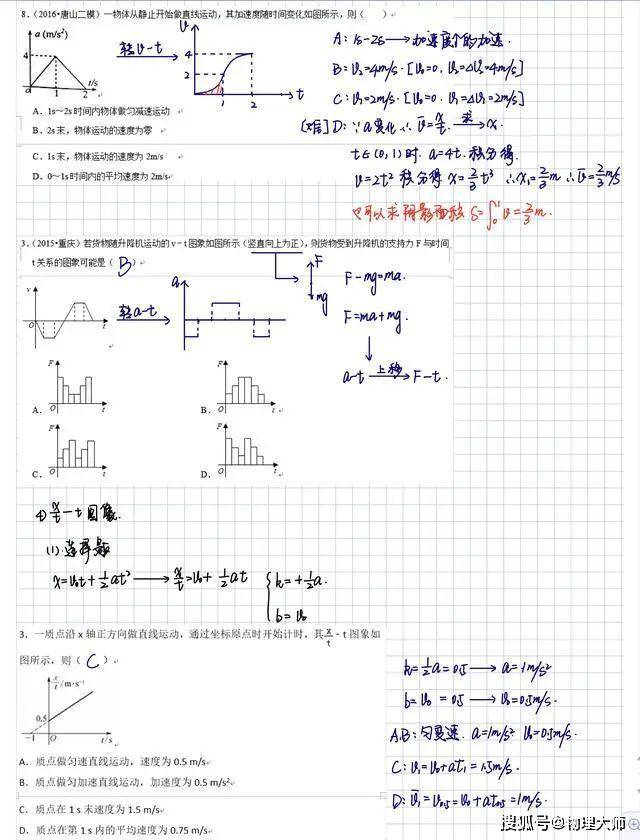 8.（2016•唐山二模）一物体从静止开始做直线运动，其加速度随时间变化如图所示，则（ ）
a (m/s²)
4
0 1 2 t/s
转v-t
v
4
2
1 2 t
A. 1s～2s时间内物体做匀减速运动
B. 2s末，物体运动的速度为零
C. 1s末，物体运动的速度为 2m/s
D. 0～1s时间内的平均速度为 2m/s
A: 1s-2s→加速度
的加速.
B: v₂=4m/s. [v₀=0, v₂=Δv₂=4m/s]
C: v₁=2m/s. [v₀=0. v₁=Δv₁=2m/s]
D: ∵a变化 ∴ v̄=x/t 求→x.
t∈(0,1)时. a=4t. 积分得.
v=2t² 积分得 x=2/3t³ ∴x₁=2/3m ∴v̄=2/3m/s
也可以求阴影面积 S=∫₀¹v=2/3m.
3.（2015•重庆）若货物随升降机运动的 v－t 图象如图所示（竖直向上为正），则货物受到升降机的支持力 F 与时间
t 关系的图象可能是（ B ）
v
O t
转a-t
a
t
F
mg
F-mg=ma.
F=ma+mg.
a-t 上移→F-t.
F
A. O t
F
B. O t
F
C. O t
F
D. O t
④ x/t-t图像.
(1) 选择题
x=v₀t+1/2at²→x/t=v₀+1/2at
k=+1/2a.
b=v₀
3、一质点沿 x 轴正方向做直线运动，通过坐标原点时开始计时，其x/t - t 图象如
图所示，则（ C ）
x/t/m·s⁻¹
0.5
-1 0 t/s
A．质点做匀速直线运动，速度为 0.5 m/s
B．质点做匀加速直线运动，加速度为 0.5 m/s²
C．质点在 1 s 末速度为 1.5 m/s
D．质点在第 1 s 内的平均速度为 0.75 m/s
k=1/2a=0.5→a=1m/s²
b=v₀=0.5→v₀=0.5m/s.
A.B: 匀变速. a=1m/s² v₀=0.5m/s.
C: v₁=v₀+at₁=1.5m/s.
D: v̄₁=v₀.₅=v₀+at₀.₅=1m/s.
搜狐号@物理大师